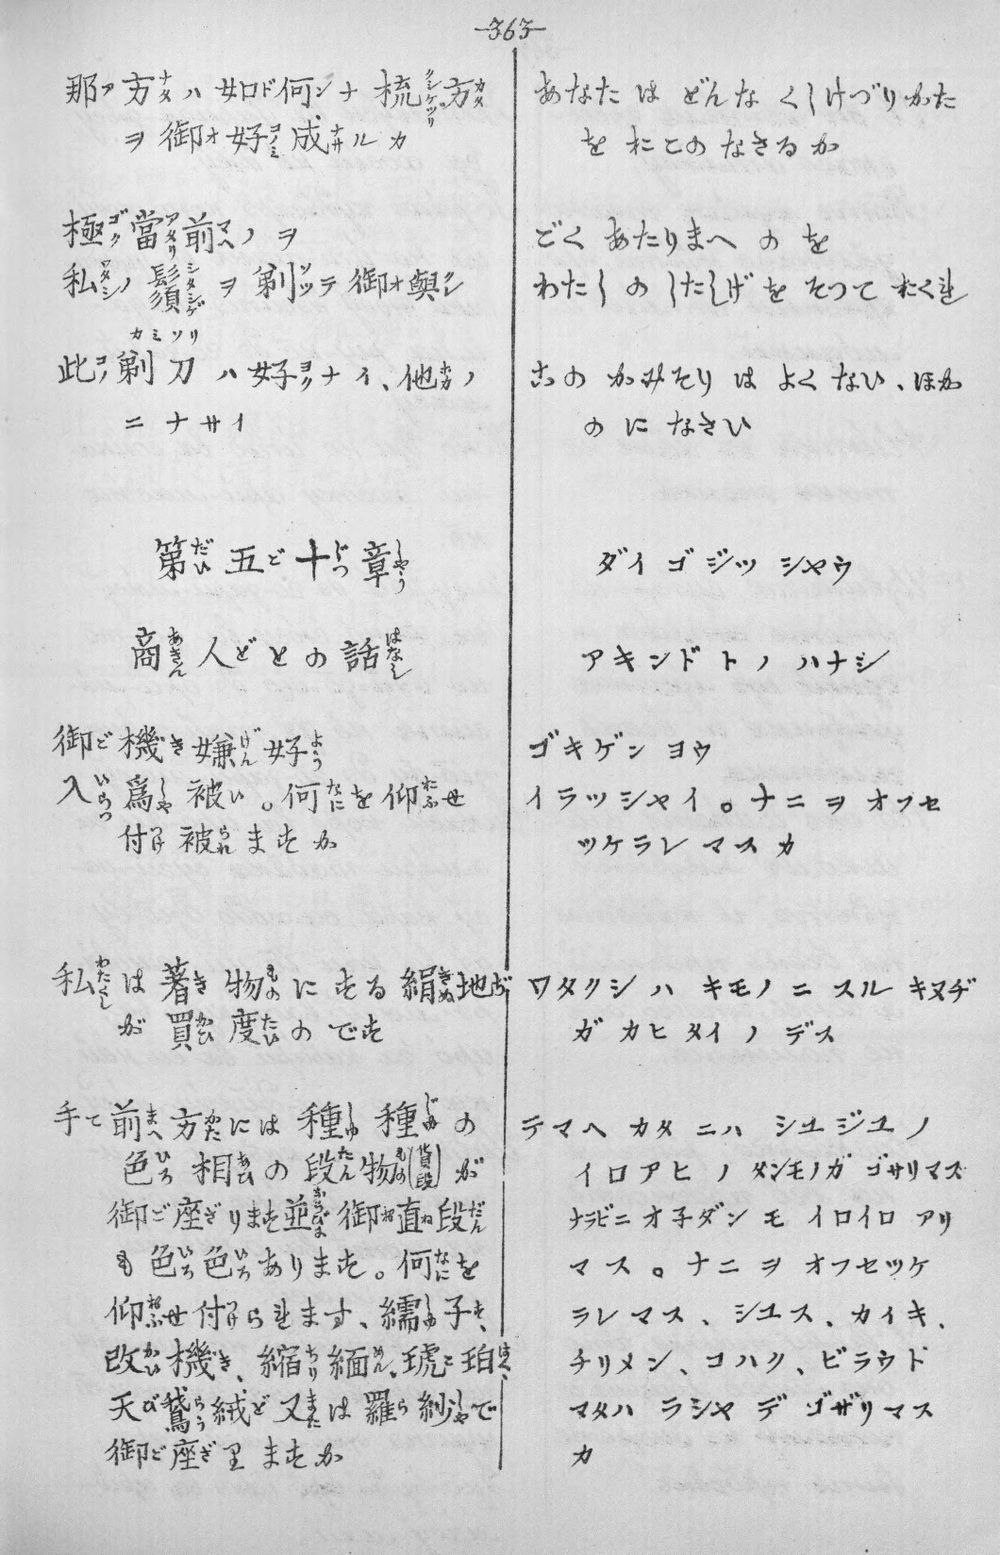 363
那ア方ナタハ如ド何ンナ梳クシケヅリ方カタ
ヲ御オ好コノミ成ナサルカ
極ゴク當アタリ前マヘノヲ
私ワタシノ鬚シタシゲヲ剃ソツテ御オ與クレ
此コノ剃刀カミソリハ好ヨクナイ、他ホカノ
ニナサイ
第だい五ご十じつ章しやう
商あきん人どとの話はなし
御ご機き嫌げん好よう
入いらつ爲しや被い。何なにを仰おふせ
付つけ被られますか
私わたくしは著き物ものにする絹きぬ地ぢ
が買かひ度たいのです
手て前まへ方かたには種しゆ種じゆの
色いろ相あひの段たん物もの(貨段)が
御ご座ざります並ならびに御お直ね段だん
も色いろ色いろあります。何なにを
仰おふせ付つけられます、繻しゆ子す、
改かい機き、縮ちり緬めん、琥こ珀はく、
天び鵞らう絨ど又または羅ら紗しやで
御ご座ざりますか
あなた は どんな くしけづりかた
を おこのみ なさるか
ごく あたりまへ の を
わたし の したしげ を そつて おくれ
この かみそり は よく ない、ほか
の に なさい
ダイ ゴ ジツ シヤウ
アキンド ト ノ ハナシ
ゴキゲン ヨウ
イラツシヤイ。ナニ ヲ オフセ
ツケラレ マス カ
ワタクシ ハ キモノ ニ スル キヌヂ
ガ カヒ タイ ノ デス
テマヘ カタ ニハ シユジユ ノ
イロアヒ ノ タンモノガ ゴザリマス
ナラビニ オ子ダン モ イロイロ アリ
マス。ナニ ヲ オフセツケ
ラレ マス、シユス、カイキ、
チリメン、コハク、ビラウド
マタハ ラシヤ デ ゴザリマス
カ